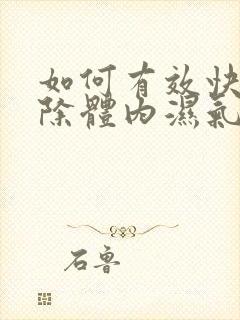 如何有效快
除體內濕氣
石魯